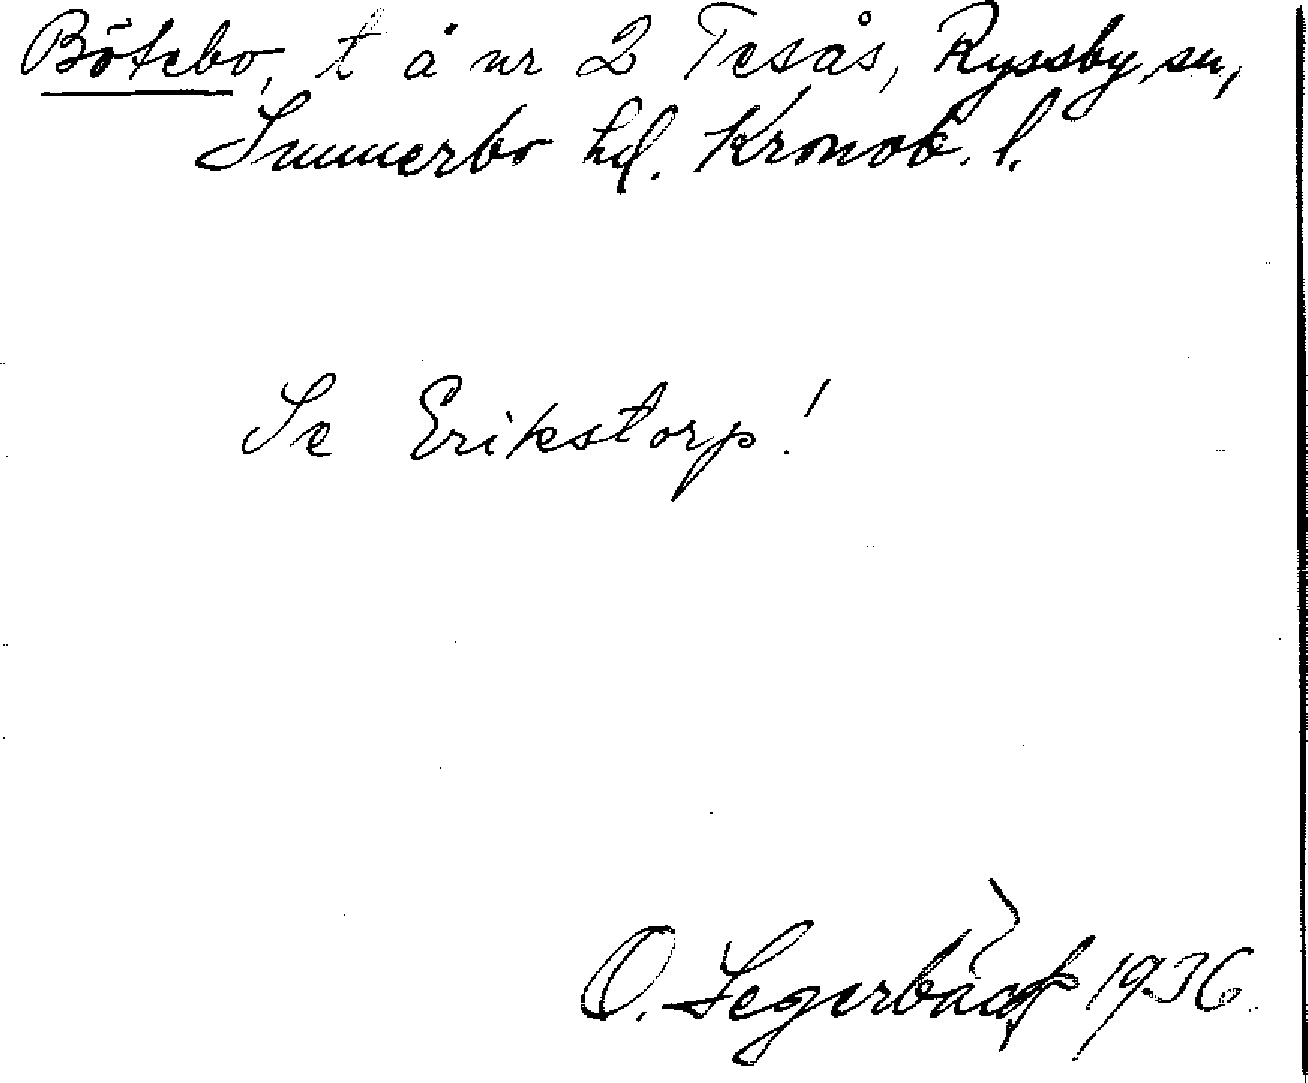 Bötebo, t å nr 2 Tesås, Ryssby sn,
Sunnerbo hd. Kronob. l.
Se Erikstorp!
O. Segerbäck 1936.